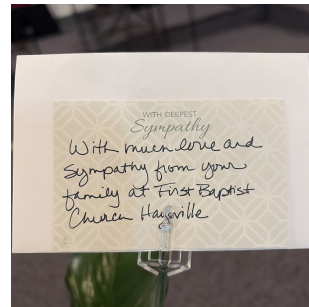 WITH DEEPEST
Sympathy
With much love and
Sympathy from your
family at First Baptist
Church Haysville